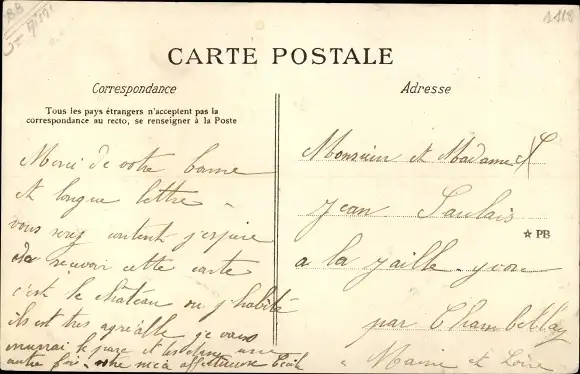 CARTE POSTALE
Correspondance
Tous les pays étrangers n'acceptent pas la
correspondance au recto, se renseigner à la Poste
Merci de votre bonne
et longue lettre
vous serez content j'espère
de recevoir cette carte
c'est le château ou j'habite
ils est tres agréable je vous
le parc et une
autre fois. votre affectueuse
Adresse
Monsieur et Madame
Jean Saulais
a la jaille-yvon
par Chambellay
Maine et Loire
☆ PB